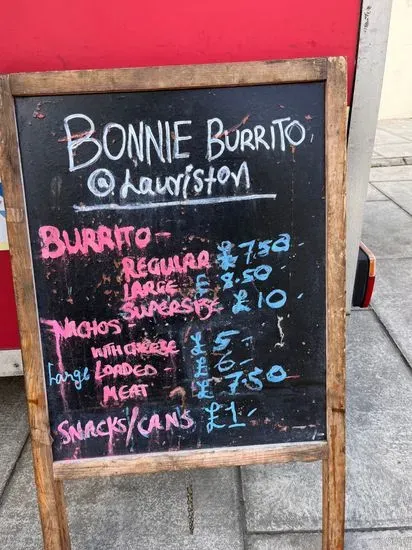 BONNIE BURRITO
@Lauriston
BURRITO-
REGULAR £7.50
LARGE £8.50-
SUPERSIZE £10-
NACHOS-
WITH CHEESE £5-
Large LOADED - £6-
MEAT - £7.50
SNACKS/CANS £1-